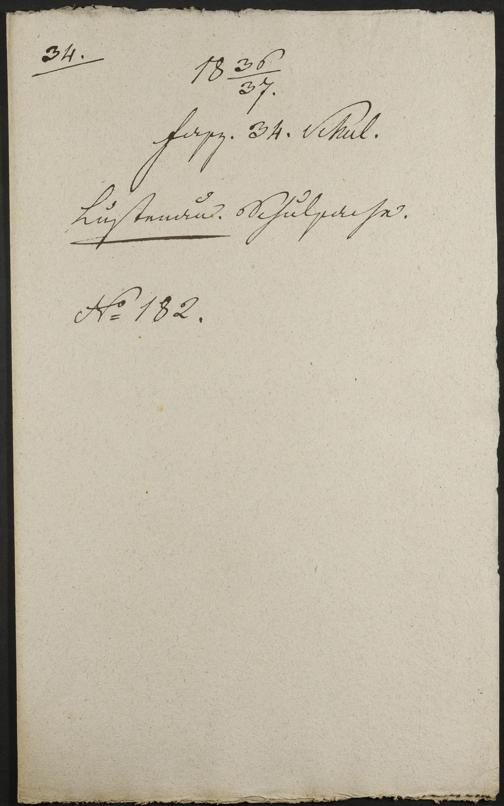 34.
18 36/37.
Fasz. 34. Schul.
Lustenau. Schulsache.
No 182.